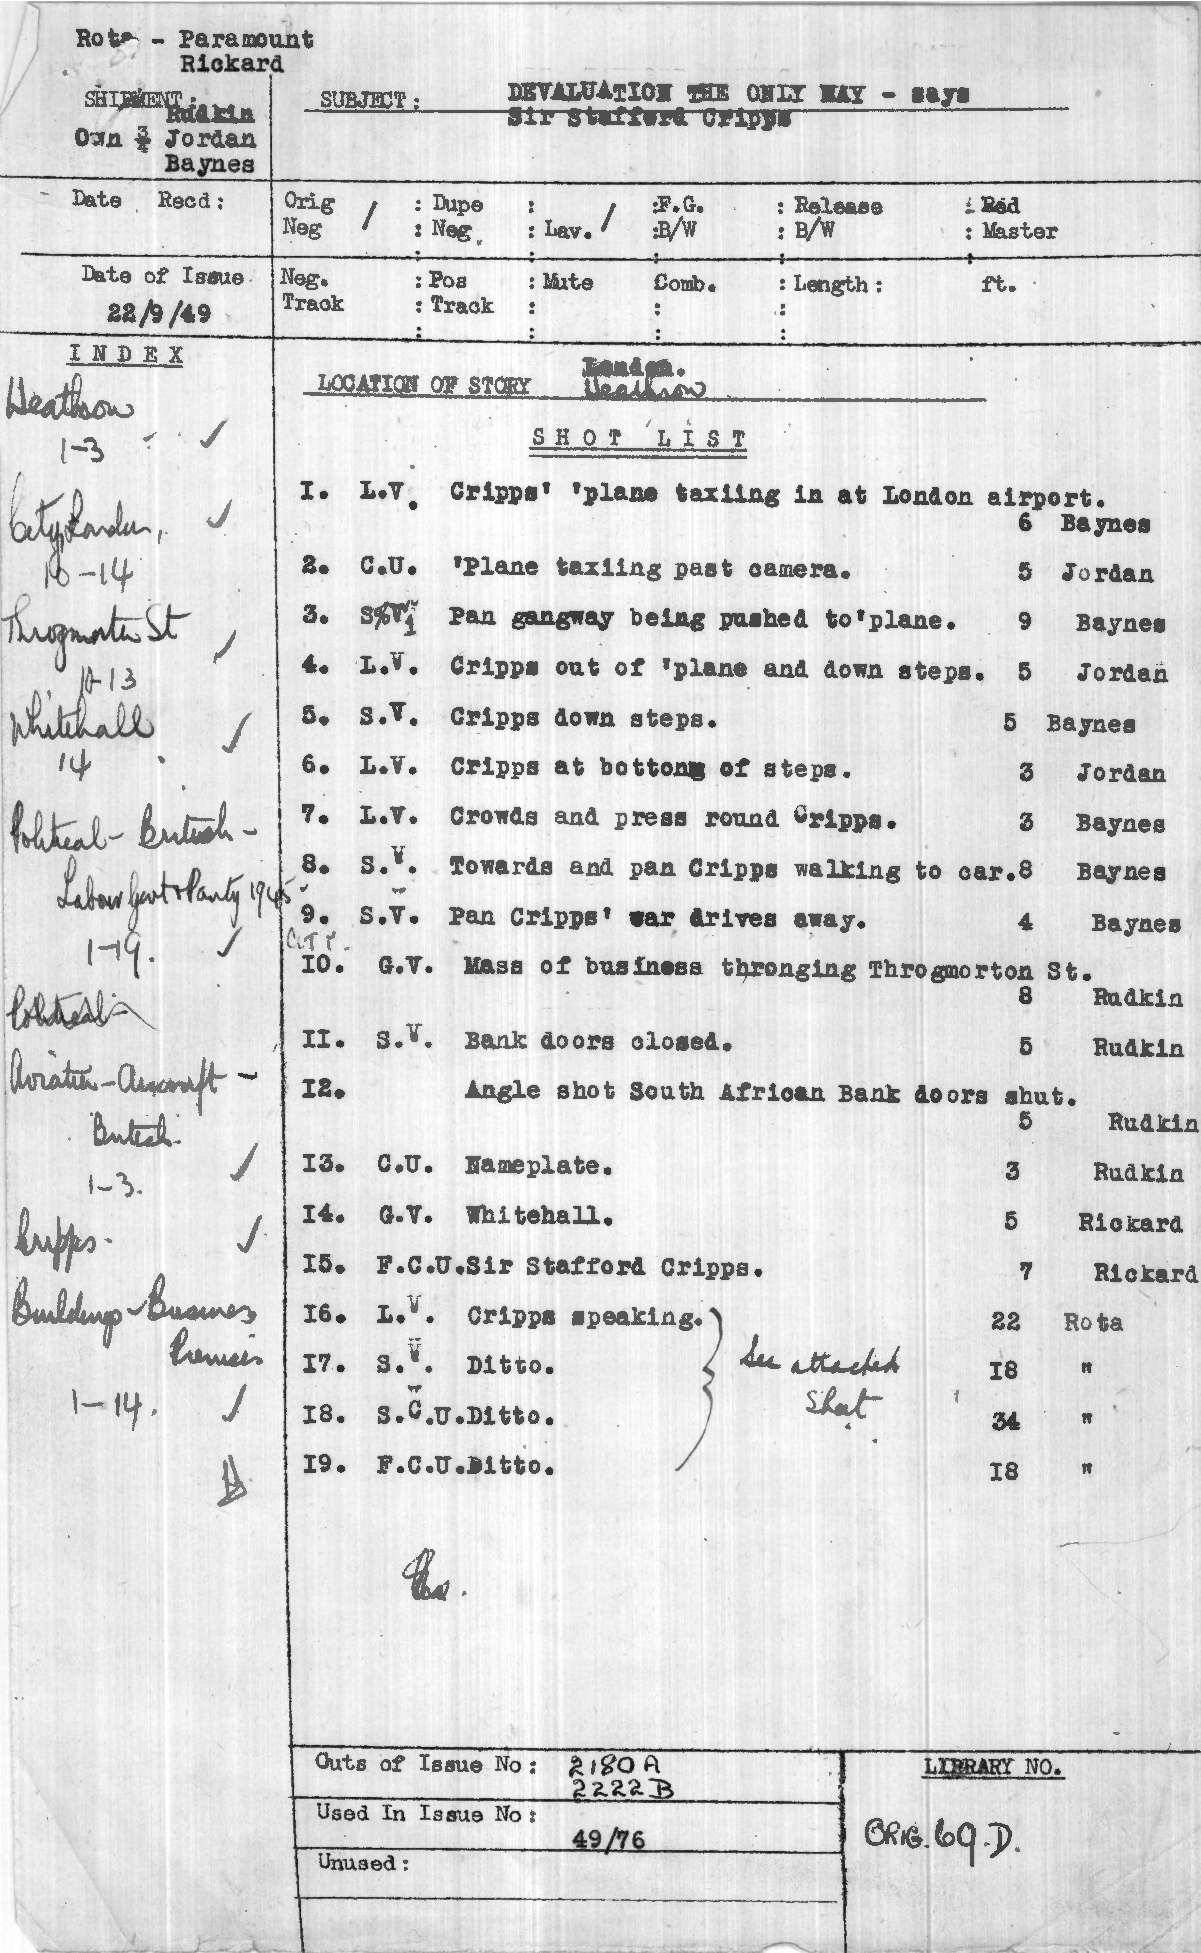 Rota - Paramount
Rickard
SHIPMENT:
Rudkin
Own 3/4 Jordan
Baynes
SUBJECT: DEVALUATION THE ONLY WAY - says
Sir Stafford Cripps
Date Recd:
Orig Neg / : Dupe Neg. : Lav. / : F.G. B/W : Release B/W : Red Master
Date of Issue
22/9/49
Neg. Track : Pos Track : Mute : Comb. : Length: ft.
INDEX
Heathrow
1-3 ✓
City, London,
10-14 ✓
Throgmorton St
10-13 ✓
Whitehall
14 ✓
Political - British -
Labour Govt & Party 1945
1-19. ✓
Political
Aviation - Aircraft -
British.
1-3. ✓
Cripps. ✓
Buildings - Business
Premises
1-14. ✓
LOCATION OF STORY London.
Heathrow
SHOT LIST
I. L.V. Cripps' 'plane taxiing in at London airport.
6 Baynes
2. C.U. 'Plane taxiing past camera. 5 Jordan
3. S.V. Pan gangway being pushed to'plane. 9 Baynes
4. L.V. Cripps out of 'plane and down steps. 5 Jordan
5. S.V. Cripps down steps. 5 Baynes
6. L.V. Cripps at bottom of steps. 3 Jordan
7. L.V. Crowds and press round Cripps. 3 Baynes
8. S.V. Towards and pan Cripps walking to car.8 Baynes
9. S.V. Pan Cripps' war drives away. 4 Baynes
CITY.
IO. G.V. Mass of business thronging Throgmorton St.
8 Rudkin
II. S.V. Bank doors closed. 5 Rudkin
I2. Angle shot South African Bank doors shut.
5 Rudkin
I3. C.U. Nameplate. 3 Rudkin
I4. G.V. Whitehall. 5 Rickard
I5. F.C.U.Sir Stafford Cripps. 7 Rickard
I6. L.V. Cripps speaking. 22 Rota
I7. S.V. Ditto. I8 "
I8. S.C.U.Ditto. 34 "
I9. F.C.U.Ditto. I8 "
See attached
Sheet
Outs of Issue No: 2180A
2222B
Used In Issue No:
49/76
Unused:
LIBRARY NO.
ORIG. 69.D.